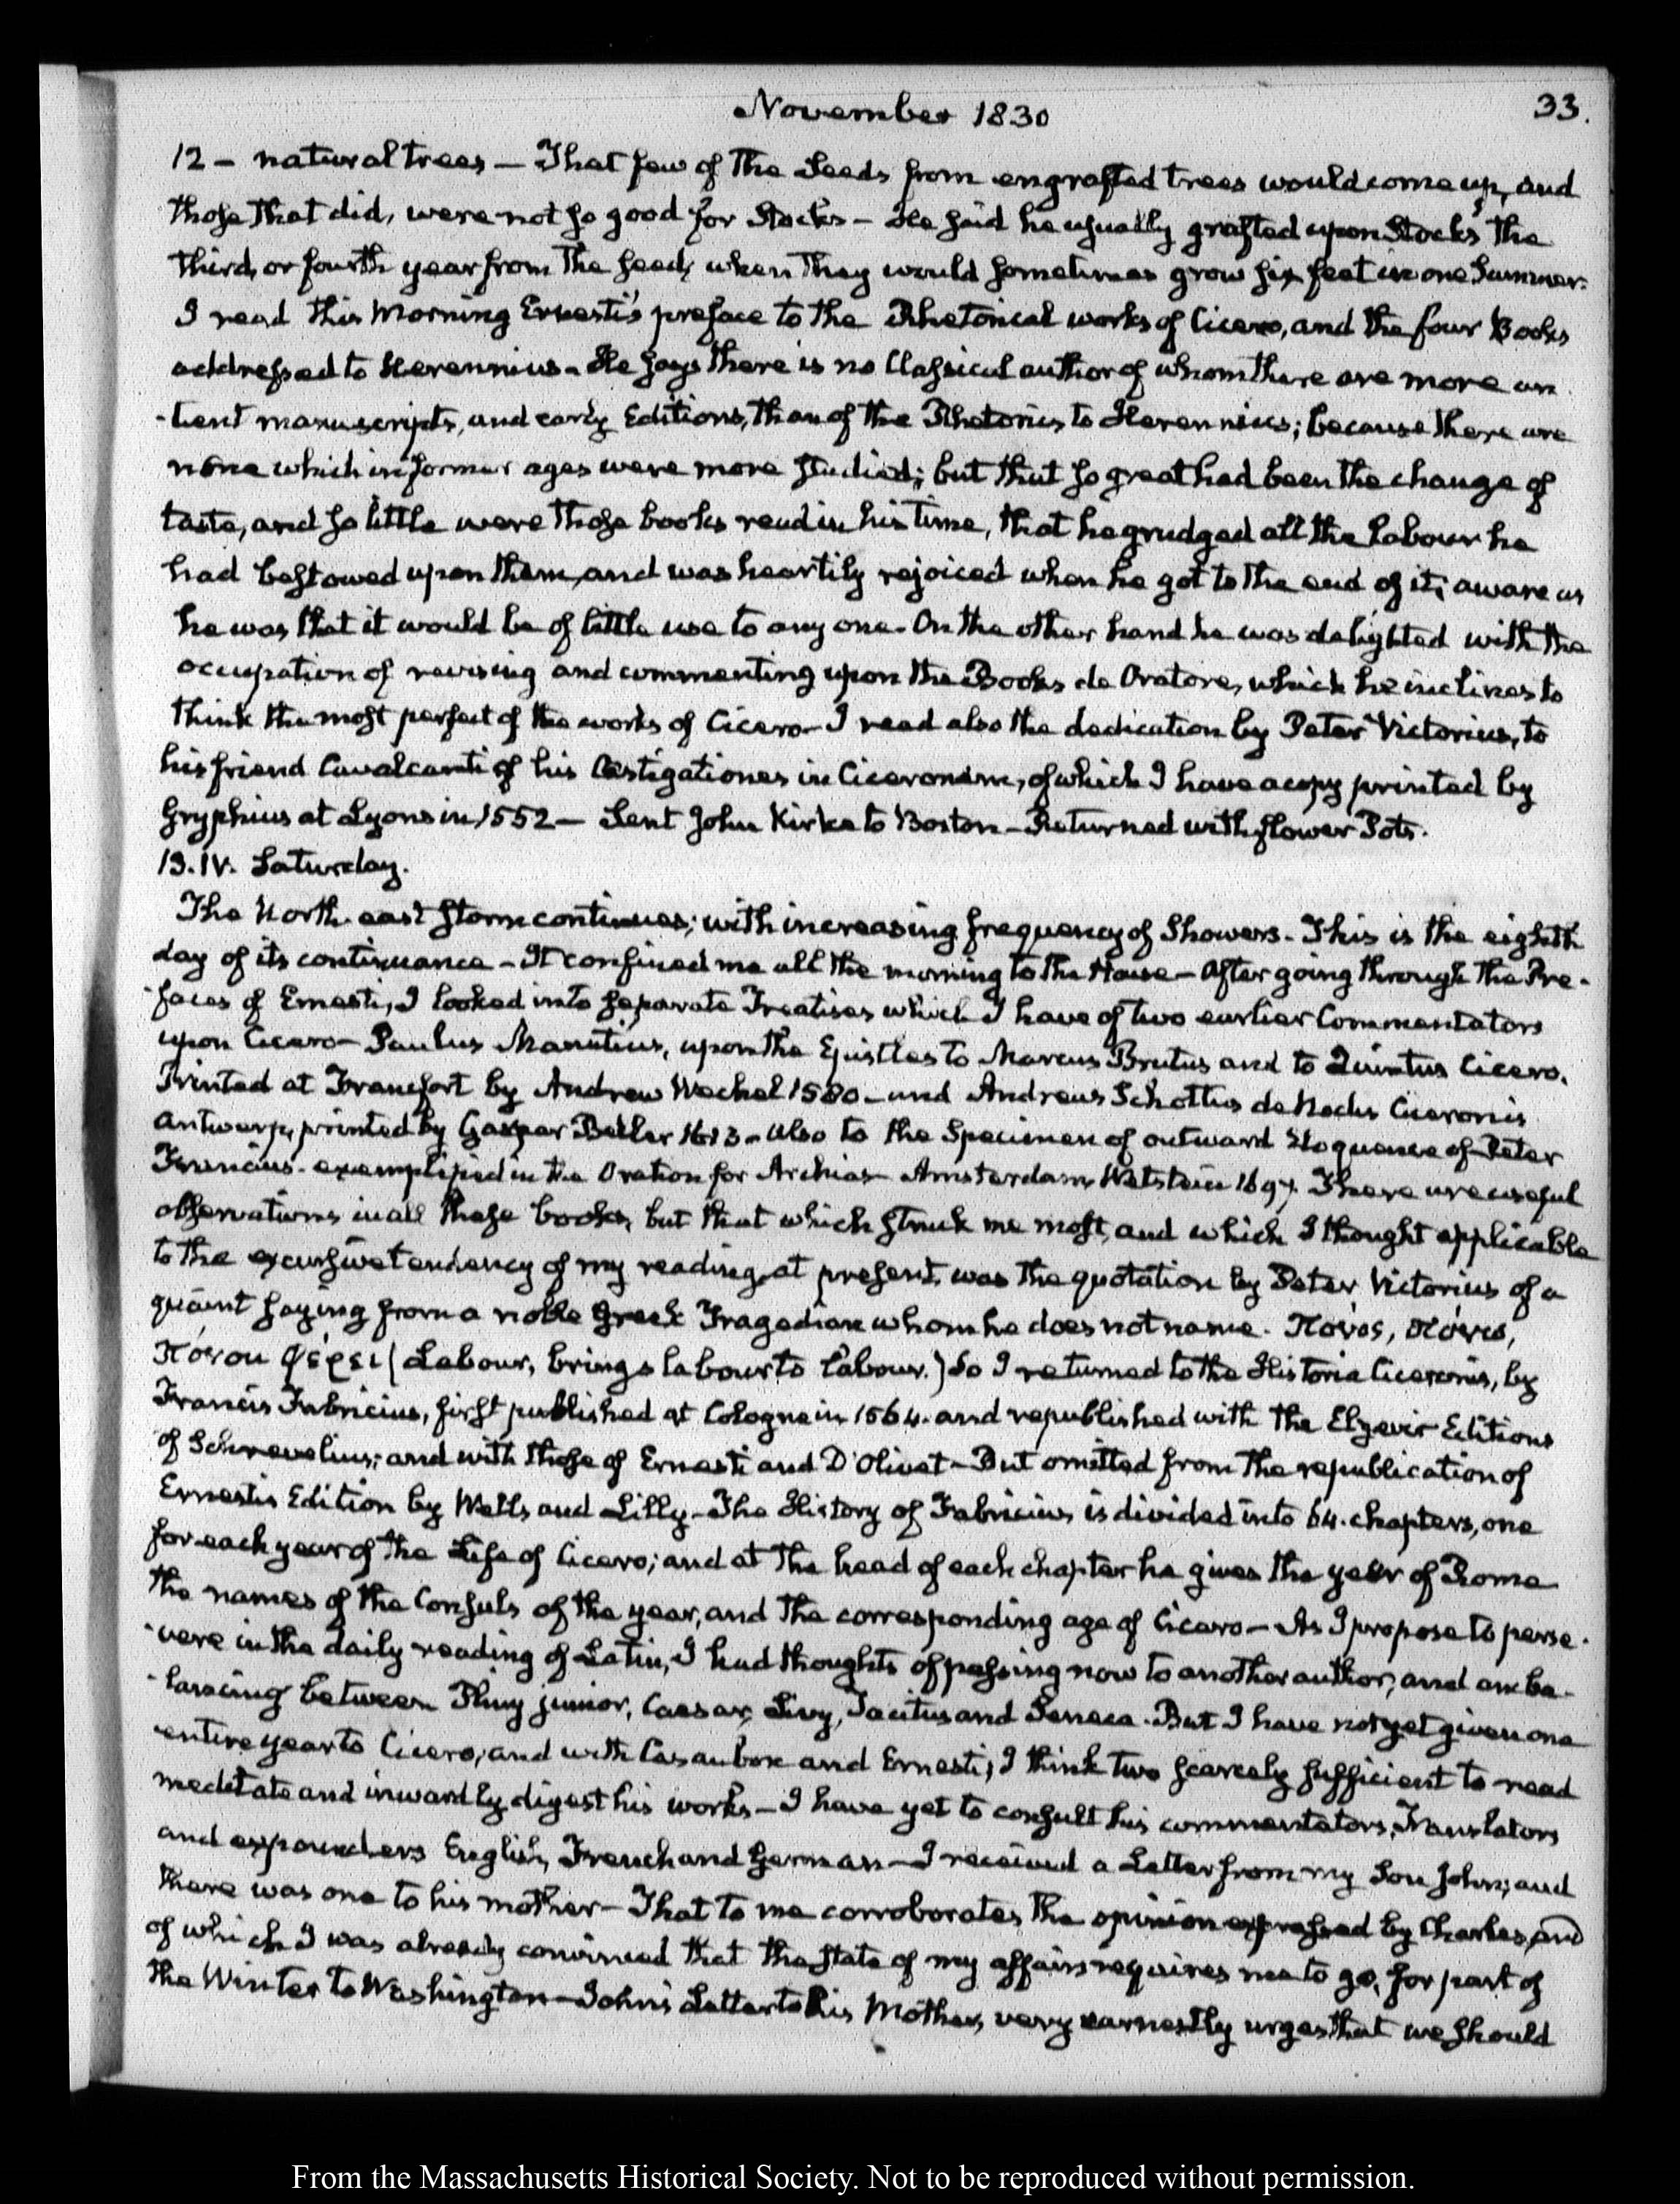 November 1830
33.
12 – natural trees – That few of the Seeds from engrafted trees would come up, and
those that did, were not so good for Stocks – He said he usually grafted upon Stocks the
third, or fourth year from the seed, when they would sometimes grow six feet in one Summer.
I read this Morning Ernesti's preface to the Rhetorical works of Cicero, and the four Books
addressed to Herennius – He says there is no Classical author of whom there are more an
-tient manuscripts, and early Editions, than of the Rhetorics to Herennius; because there are
none which in former ages were more studied; but that so great had been the change of
taste, and so little were those books read in his time, that he grudged all the labour he
had bestowed upon them, and was heartily rejoiced when he got to the end of it; aware as
he was that it would be of little use to any one. On the other hand he was delighted with the
occupation of revising and commenting upon the Books de Oratore, which he inclines to
think the most perfect of the works of Cicero – I read also the dedication by Peter Victorius, to
his friend Cavalcanti of his Castigationes in Ciceronem, of which I have a copy printed by
Gryphius at Lyons in 1552 – Sent John Kirke to Boston – Returned with flower Pots.
13. IV. Saturday.
The North-east storm continues; with increasing frequency of Showers. This is the eighth
day of its continuance – It confined me all the morning to the House – After going through the Pre-
-faces of Ernesti, I looked into separate Treatises which I have of two earlier Commentators
upon Cicero – Paulus Manutius, upon the Epistles to Marcus Brutus and to Quintus Cicero.
Printed at Francfort by Andrew Wechel 1580 – and Andreas Schottus de Nodis Ciceronis
Antwerp, printed by Gaspar Beller 1613 – also to the Specimen of outward Eloquence of Peter
Francius. exemplified in the Oration for Archias – Amsterdam, Wetstein 1697. There are useful
observations in all these books, but that which struck me most, and which I thought applicable
to the excursive tendency of my reading, at present, was the quotation by Peter Victorius of a
quaint saying from a noble Greek Tragedian whom he does not name. Πόνος, πόνῳ,
πόνον φέρει (Labour, brings labour to labour.) So I returned to the Historia Ciceronis, by
Francis Fabricius, first published at Cologne in 1564. and republished with the Elzevir Editions
of Schrevelius; and with those of Ernesti and D'Olivet – But omitted from the republication of
Ernestis Edition by Wells and Lilly – The History of Fabricius is divided into 64. chapters, one
for each year of the Life of Cicero; and at the head of each chapter he gives the year of Rome
the names of the Consuls of the year, and the corresponding age of Cicero – As I propose to perse-
-vere in the daily reading of Latin, I had thoughts of passing now to another author, and am ba-
-lancing between Pliny junior, Caesar, Livy, Tacitus and Seneca. But I have not yet given one
entire year to Cicero; and with Casaubon and Ernesti, I think two scarcely sufficient to read
meditate and inwardly digest his works – I have yet to consult his commentators, Translators
and expounders English, French and German – I received a Letter from my Son John; and
there was one to his mother – That to me corroborates the opinion expressed by Charles, and
of which I was already convinced that the state of my affairs requires me to go, for part of
the Winter to Washington – John's Letter to his Mother, very earnestly urges that we should
From the Massachusetts Historical Society. Not to be reproduced without permission.